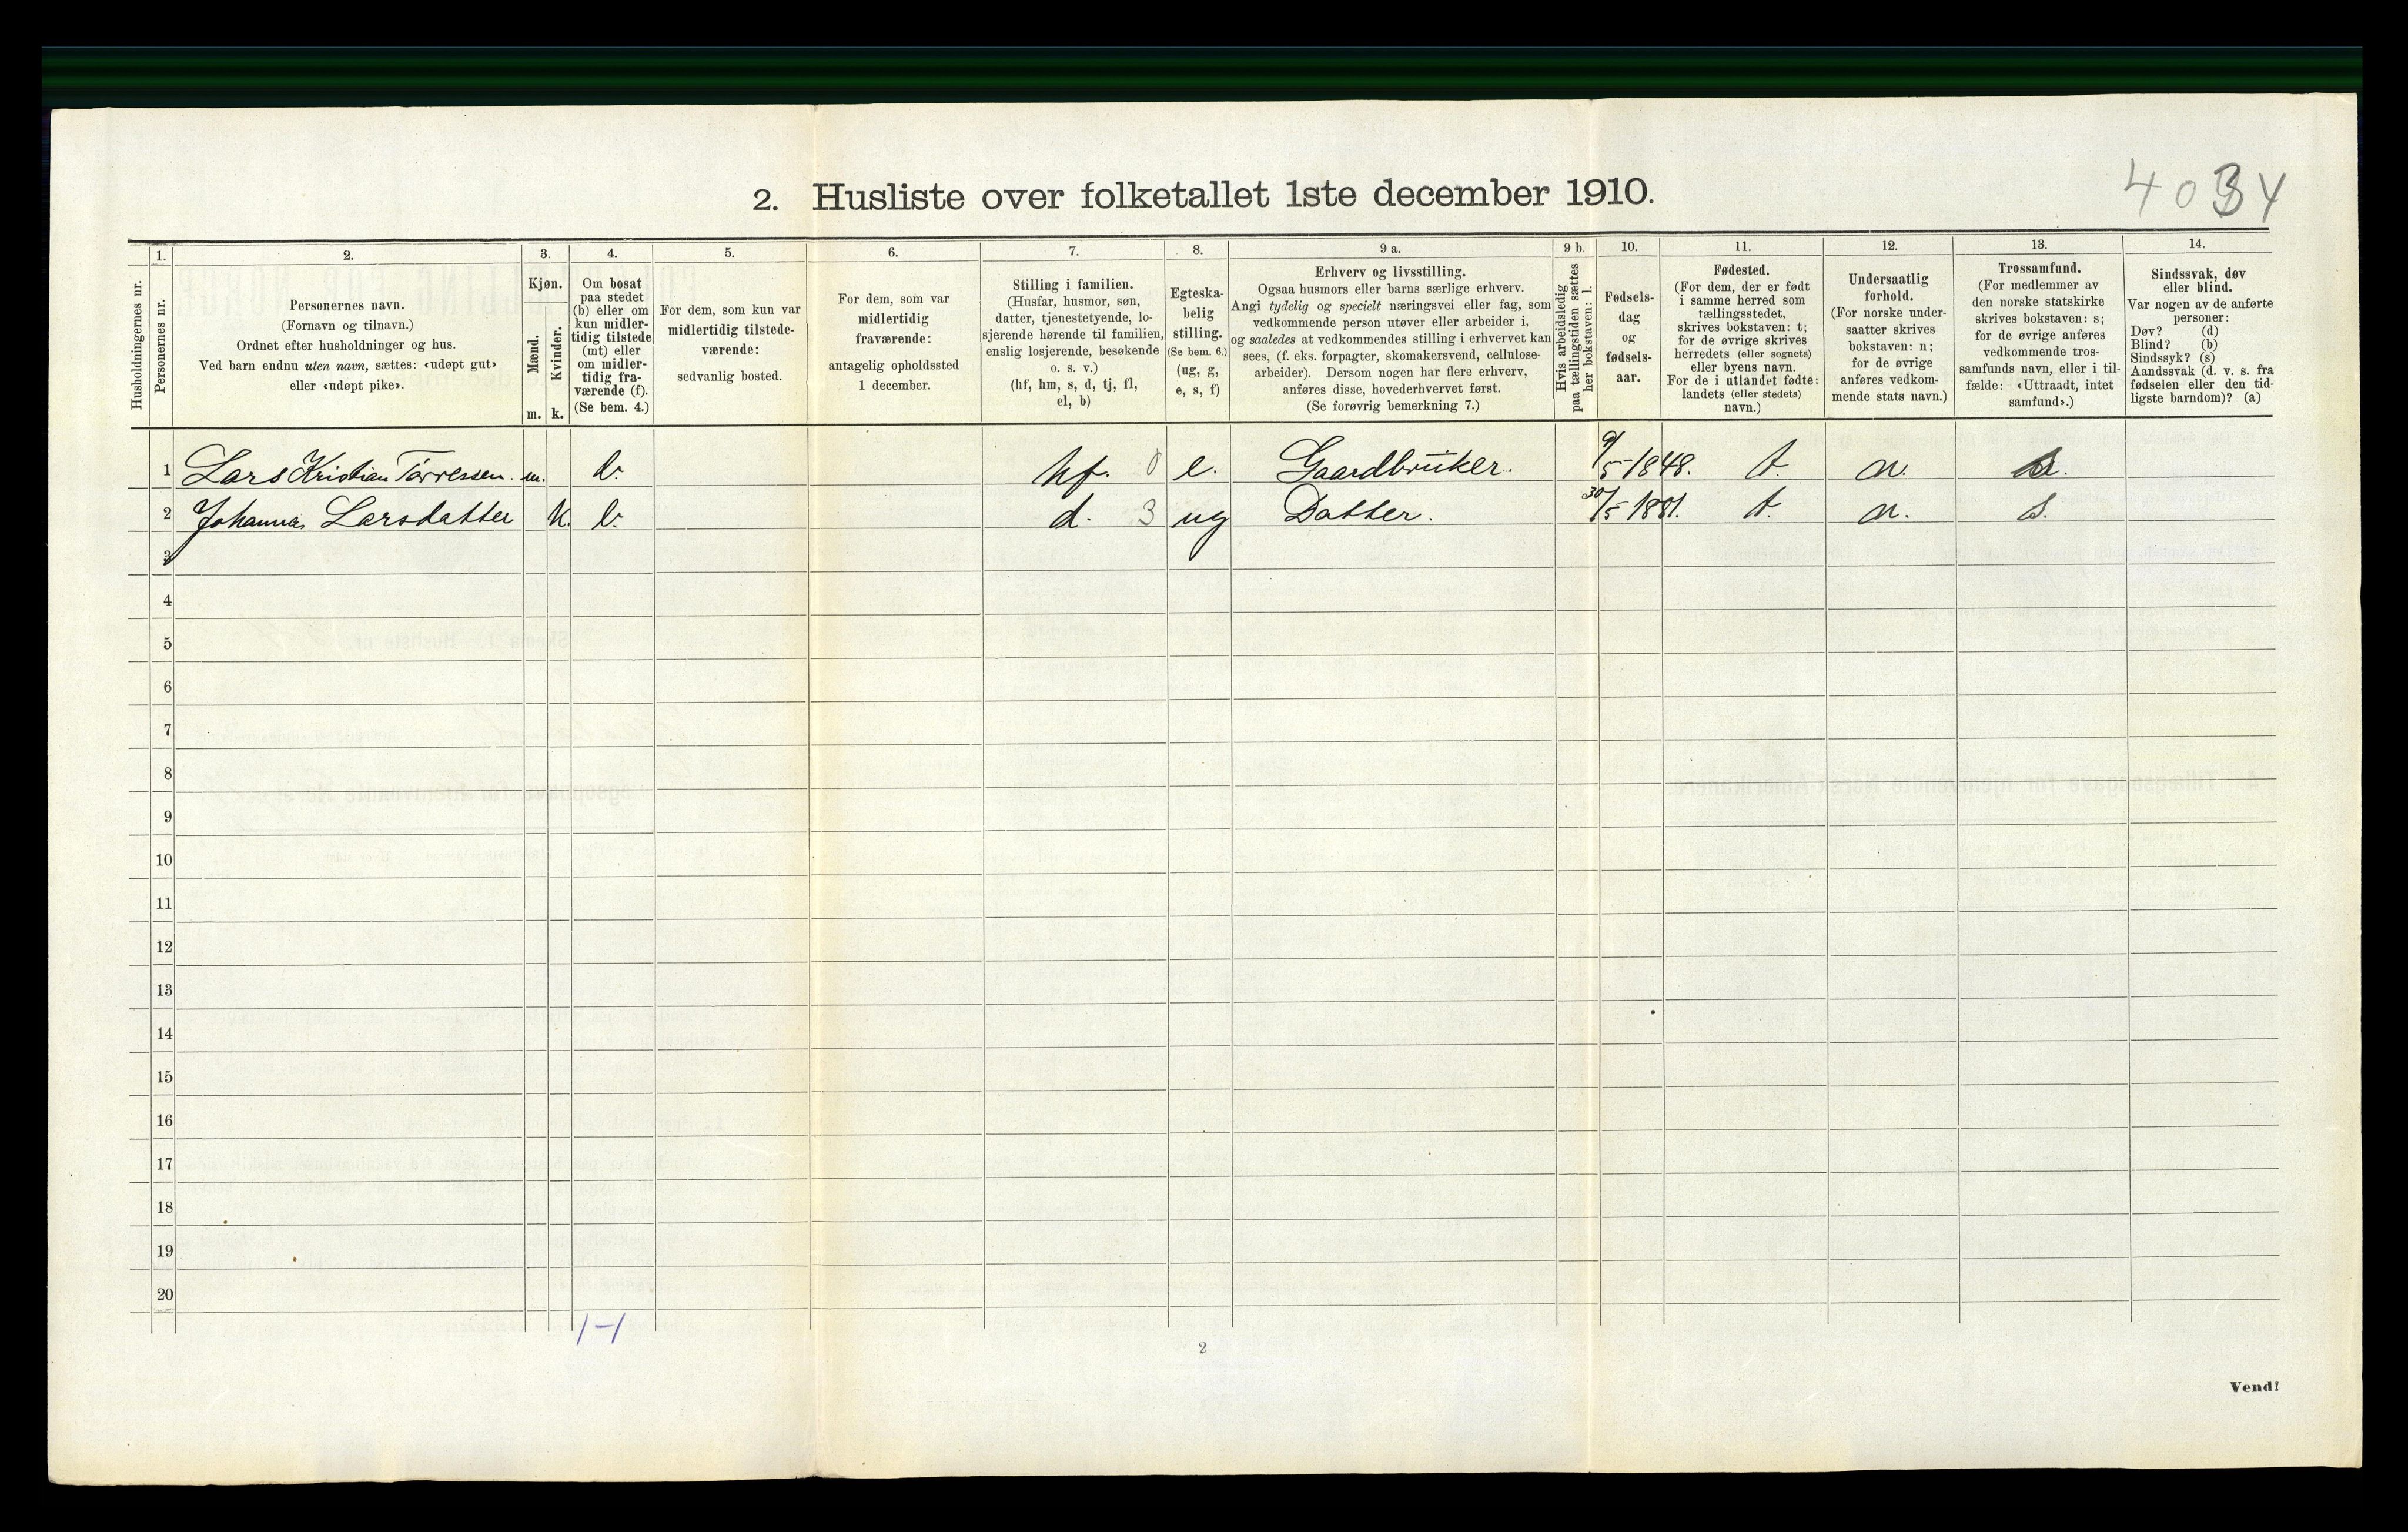 4034
2. Husliste over folketallet 1ste december 1910.
1. 2. 3. 4. 5. 6. 7. 8. 9 a. 9 b. 10. 11. 12. 13. 14.
Husholdningernes nr.
Personernes nr.
Personernes navn.
(Fornavn og tilnavn.)
Ordnet efter husholdninger og hus.
Ved barn endnu uten navn, sættes: «udøpt gut»
eller «udøpt pike».
Kjøn.
Mænd.
Kvinder.
m. k.
Om bosat
paa stedet
(b) eller om
kun midler-
tidig tilstede
(mt) eller
om midler-
tidig fra-
værende (f).
(Se bem. 4.)
For dem, som kun var
midlertidig tilstede-
værende:
sedvanlig bosted.
For dem, som var
midlertidig
fraværende:
antagelig opholdssted
1 december.
Stilling i familien.
(Husfar, husmor, søn,
datter, tjenestetyende, lo-
sjerende hørende til familien,
enslig losjerende, besøkende
o. s. v.)
(hf, hm, s, d, tj, fl,
el, b)
Egteska-
belig
stilling.
(Se bem. 6.)
(ug, g,
e, s, f)
Erhverv og livsstilling.
Ogsaa husmors eller barns særlige erhverv.
Angi tydelig og specielt næringsvei eller fag, som
vedkommende person utøver eller arbeider i,
og saaledes at vedkommendes stilling i erhvervet kan
sees, (f. eks. forpagter, skomakersvend, cellulose-
arbeider). Dersom nogen har flere erhverv,
anføres disse, hovederhvervet først.
(Se forøvrig bemerkning 7.)
Hvis arbeidsledig
paa tællingstiden sættes
her bokstaven: l.
Fødsels-
dag
og
fødsels-
aar.
Fødested.
(For dem, der er født
i samme herred som
tællingsstedet,
skrives bokstaven: t;
for de øvrige skrives
herredets (eller sognets)
eller byens navn.
For de i utlandet fødte:
landets (eller stedets)
navn.)
Undersaatlig
forhold.
(For norske under-
saatter skrives
bokstaven: n;
for de øvrige
anføres vedkom-
mende stats navn.)
Trossamfund.
(For medlemmer av
den norske statskirke
skrives bokstaven: s;
for de øvrige anføres
vedkommende tros-
samfunds navn, eller i til-
fælde: «Uttraadt, intet
samfund».)
Sindssvak, døv
eller blind.
Var nogen av de anførte
personer:
Døv? (d)
Blind? (b)
Sindssyk? (s)
Aandssvak (d. v. s. fra
fødselen eller den tid-
ligste barndom)? (a)
1 Lars Kristian Tørressen. m. b. hf. 0 e. Gaardbruker. 9/5-1848. t. n. s.
2 Johanna Larsdatter k. b. d. 3 ug Datter. 30/5 1881. t. n. s.
3
4
5
6
7
8
9
10
11
12
13
14
15
16
17
18
19
20
1-1
2
Vend!